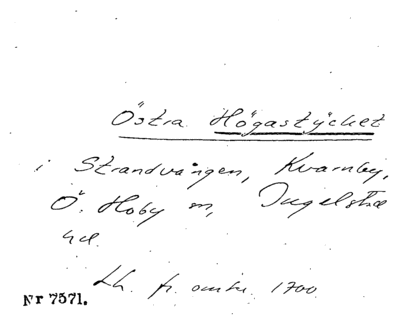 Östra Högastycket
i Strandvången, Kvarnby,
Ö. Hoby sn, Ingelstad
hd.
Lh. fr. omkr. 1700
Nr 7571.